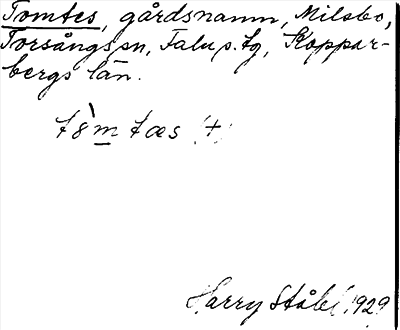 Tomtes, gårdsnamn, Milsbo,
Torsångs sn, Falu s. tg, Koppar-
bergs län.
t8̀m tæs (+)
Harry Ståhl 1929